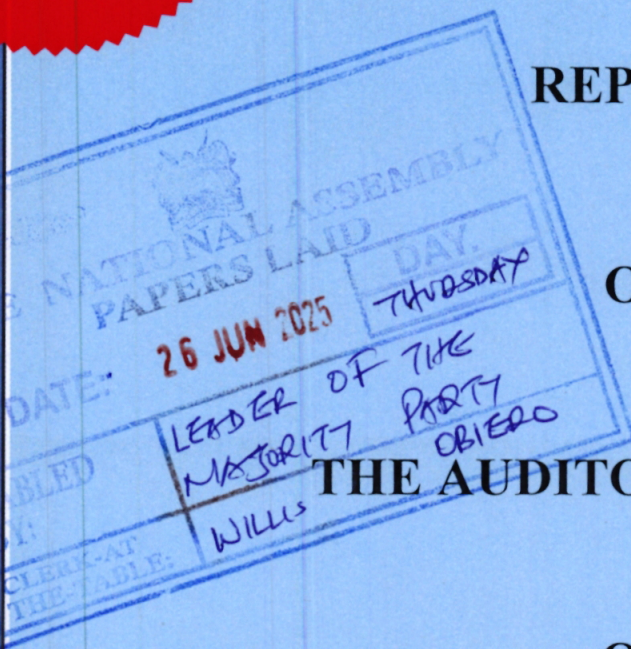 REP
E NATIONAL ASSEMBLY
PAPERS LAID
DATE: 26 JUN 2025
DAY.
THURSDAY
O
ABLED
BY:
LEADER OF THE
MAJORITY PARTY
THE AUDITO
CLERK-AT
THE-TABLE:
WILLIS OBIERO